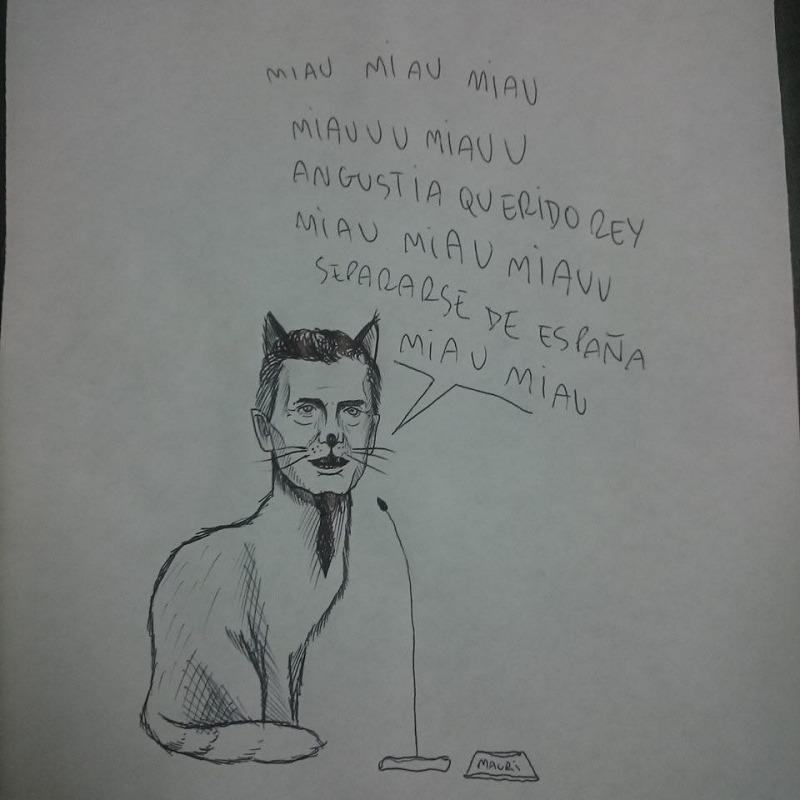 MIAU MIAU MIAU
MIAUUU MIAUU
ANGUSTIA QUERIDO REY
MIAU MIAU MIAUU
SEPARARSE DE ESPAÑA
MIAU MIAU
MAURI